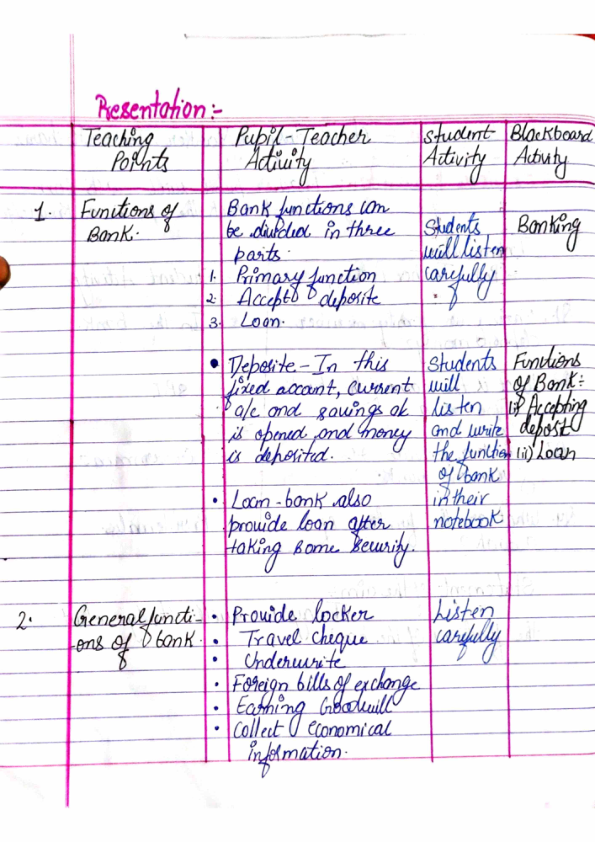 Presentation:-
Teaching Points
Pupil-Teacher Activity
Student Activity
Blackboard Activity
1. Functions of Bank.
Bank functions can
be divided in three
parts.
1. Primary function
2. Accept deposite
3. Loan.
Students
will listen
carefully
Banking
• Deposite - In this
fixed accont, current
a/c and savings ak
is opened and money
is deposited.
• Loan - bank also
provide loan after
taking some security.
Students
will
listen
and write
the function
of bank
in their
notebook.
Functions
of Bank:-
i) Accepting
deposit
(ii) Loan
2. General functi-
-ons of bank.
• Provide locker
• Travel cheque
• Underwrite
• Foreign bills of exchange
• Earning Goodwill
• Collect economical
information.
Listen
carefully